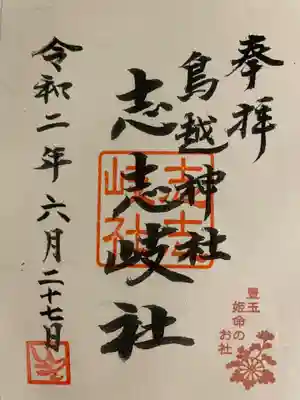 奉拝
鳥越神社
志志岐社
令和二年六月二十七日
豊玉
姫命の
お社